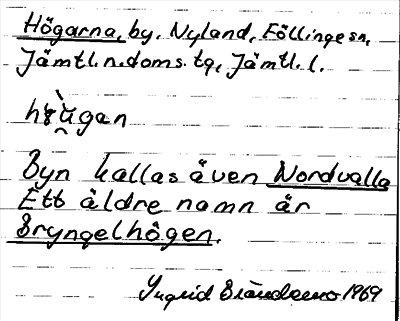 Högarna, by. Nyland, Föllinge sn,
Jämtl. n. doms. tg, Jämtl. l.
Byn kallas även Nordvalla
Ett äldre namn är
Bryngelhögen.
Ingrid 1969